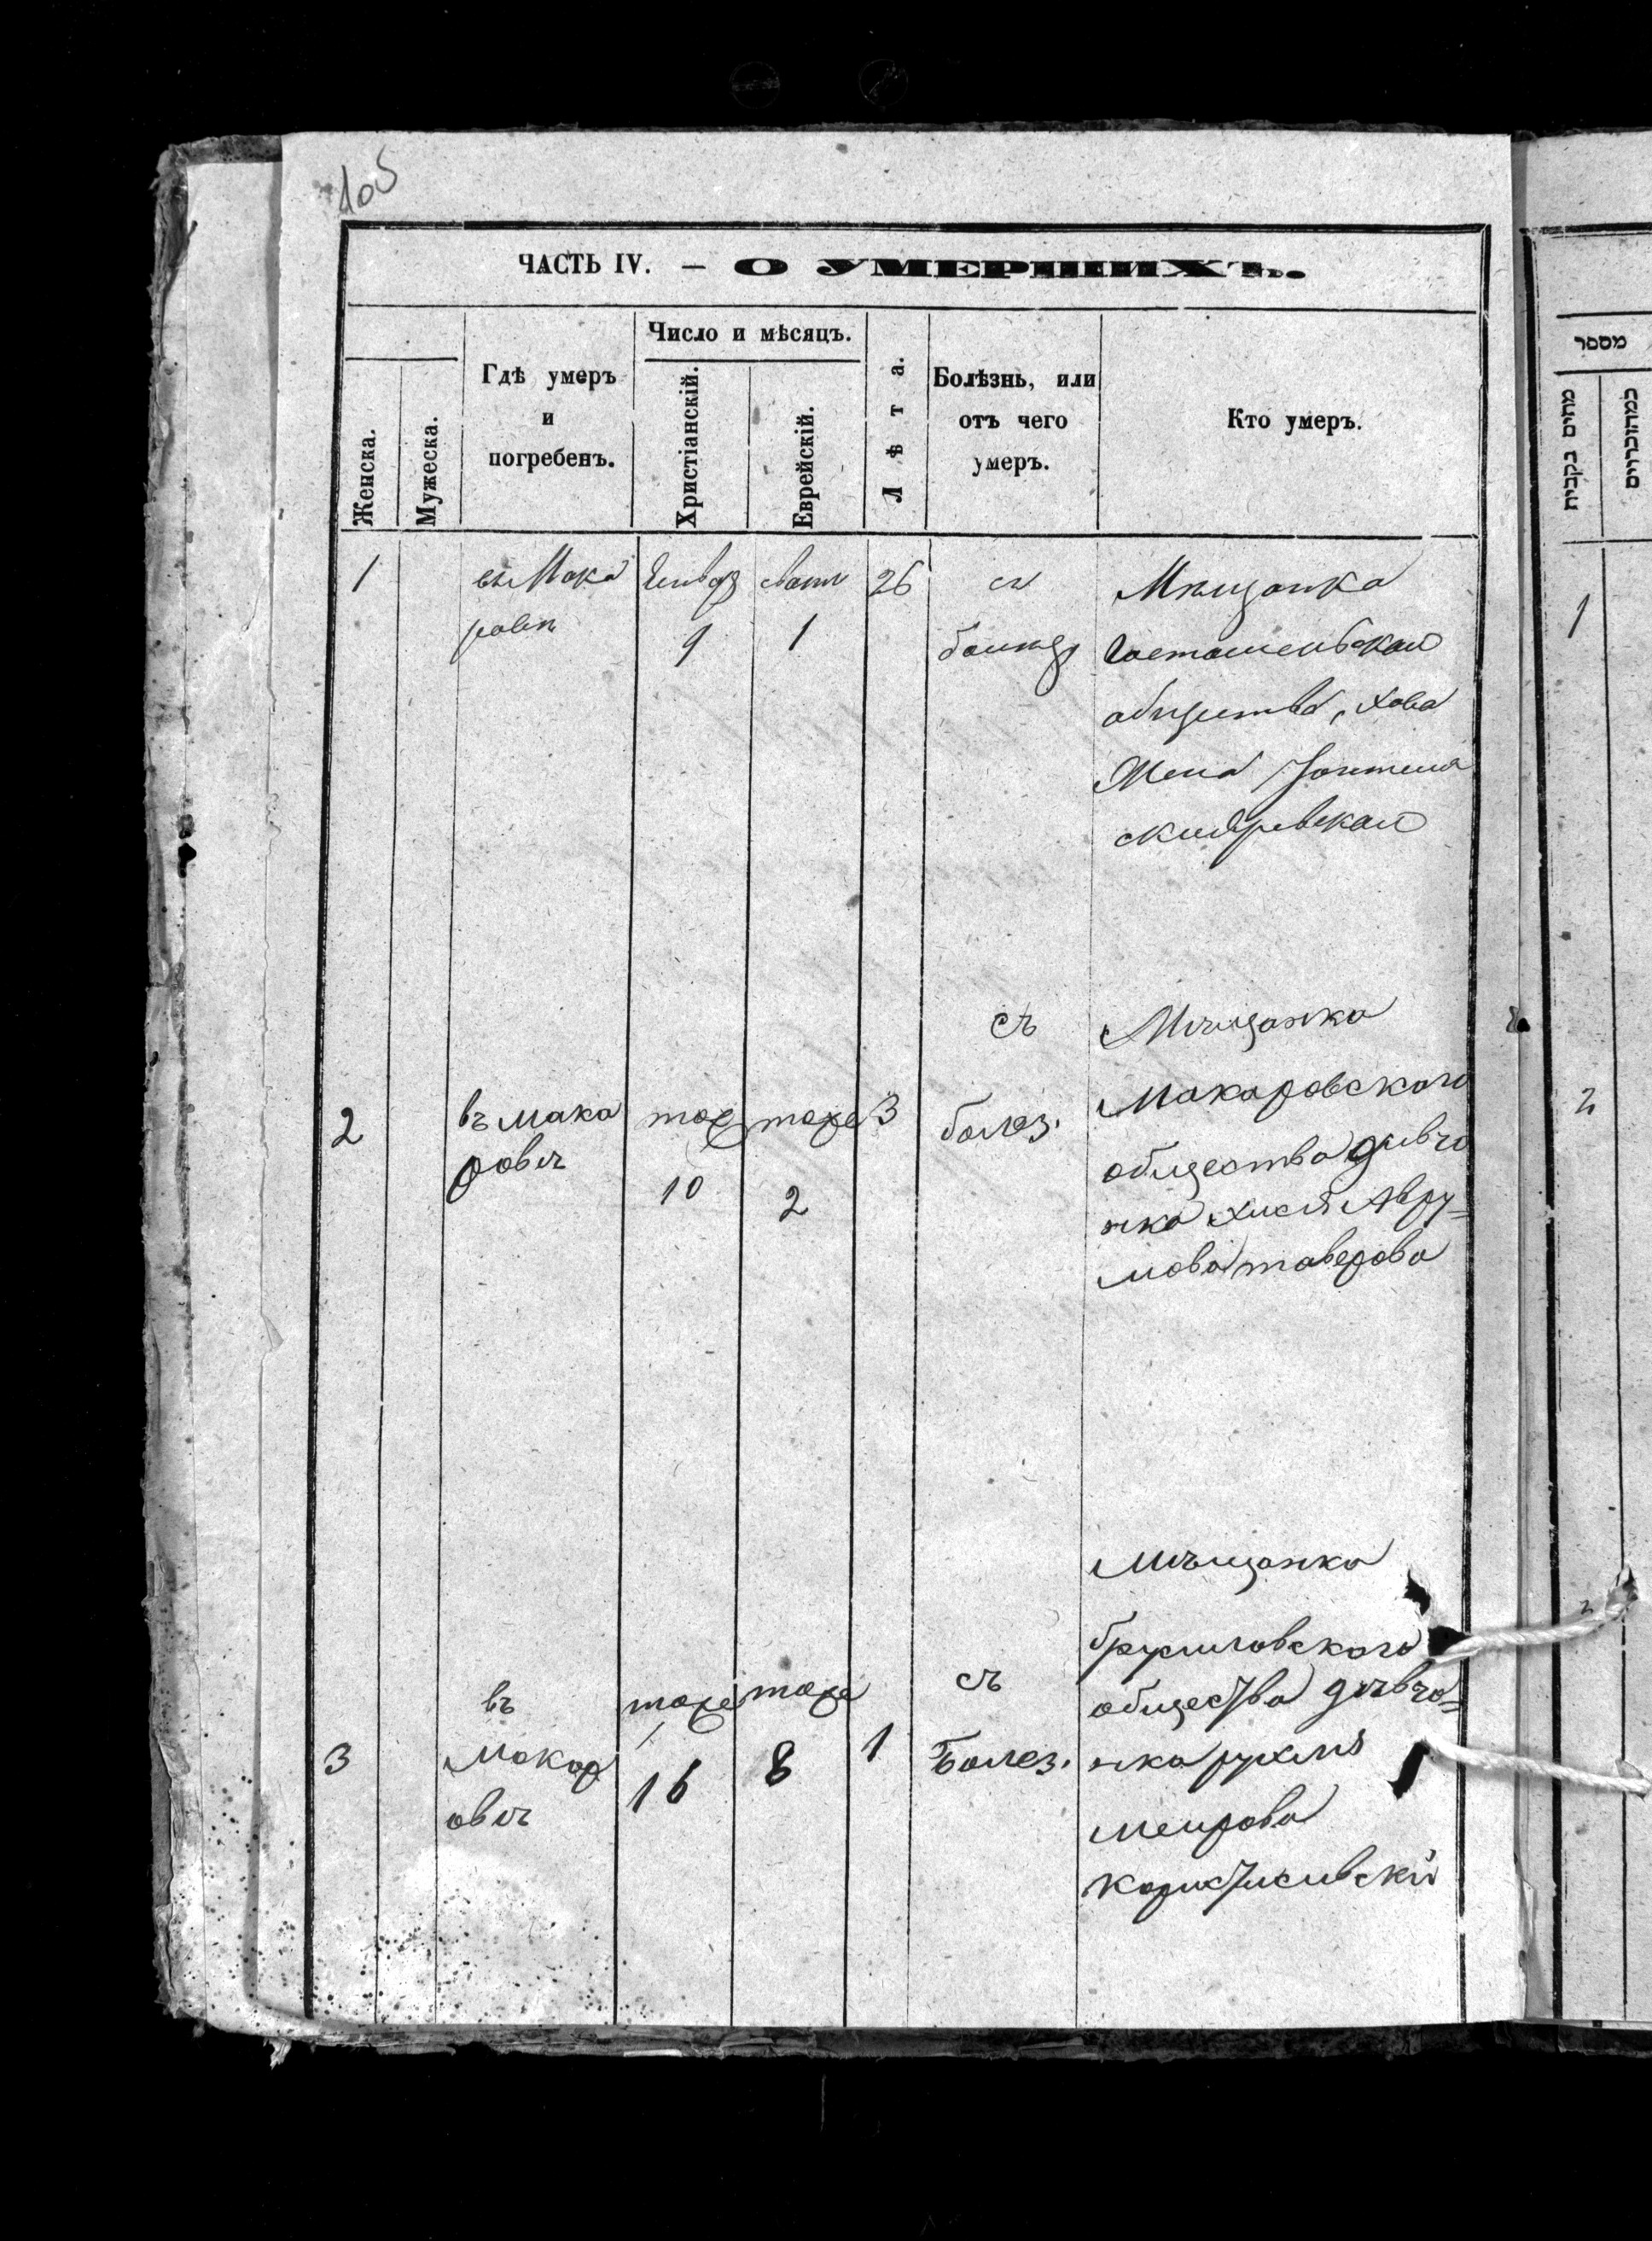 105
ЧАСТЬ IV. — О УМЕРШИХЪ.
Женска.
Мужеска.
Гдѣ умеръ
и
погребенъ.
Число и мѣсяцъ.
Христіанскій.
Еврейскій.
Лѣта.
Болѣзнь, или
отъ чего
умеръ.
Кто умеръ.
מספר
מתים נקבות
1
въ Мака
ровѣ
Генвар
9
1
26
съ
Мѣщанка
общества, Хова
Жена
2
въ мака
ровѣ
тоже
10
тоже
2
3
съ
болез.
Мѣщанка
Макаровского
общества дивчо
нка Хися Авру=
мова таверова
3
въ
Макар
овѣ
тоже
16
тоже
8
1
съ
Болез.
Мѣщанка
брусиловского
общества дѣвчо=
нка рухля
меирова
1
2